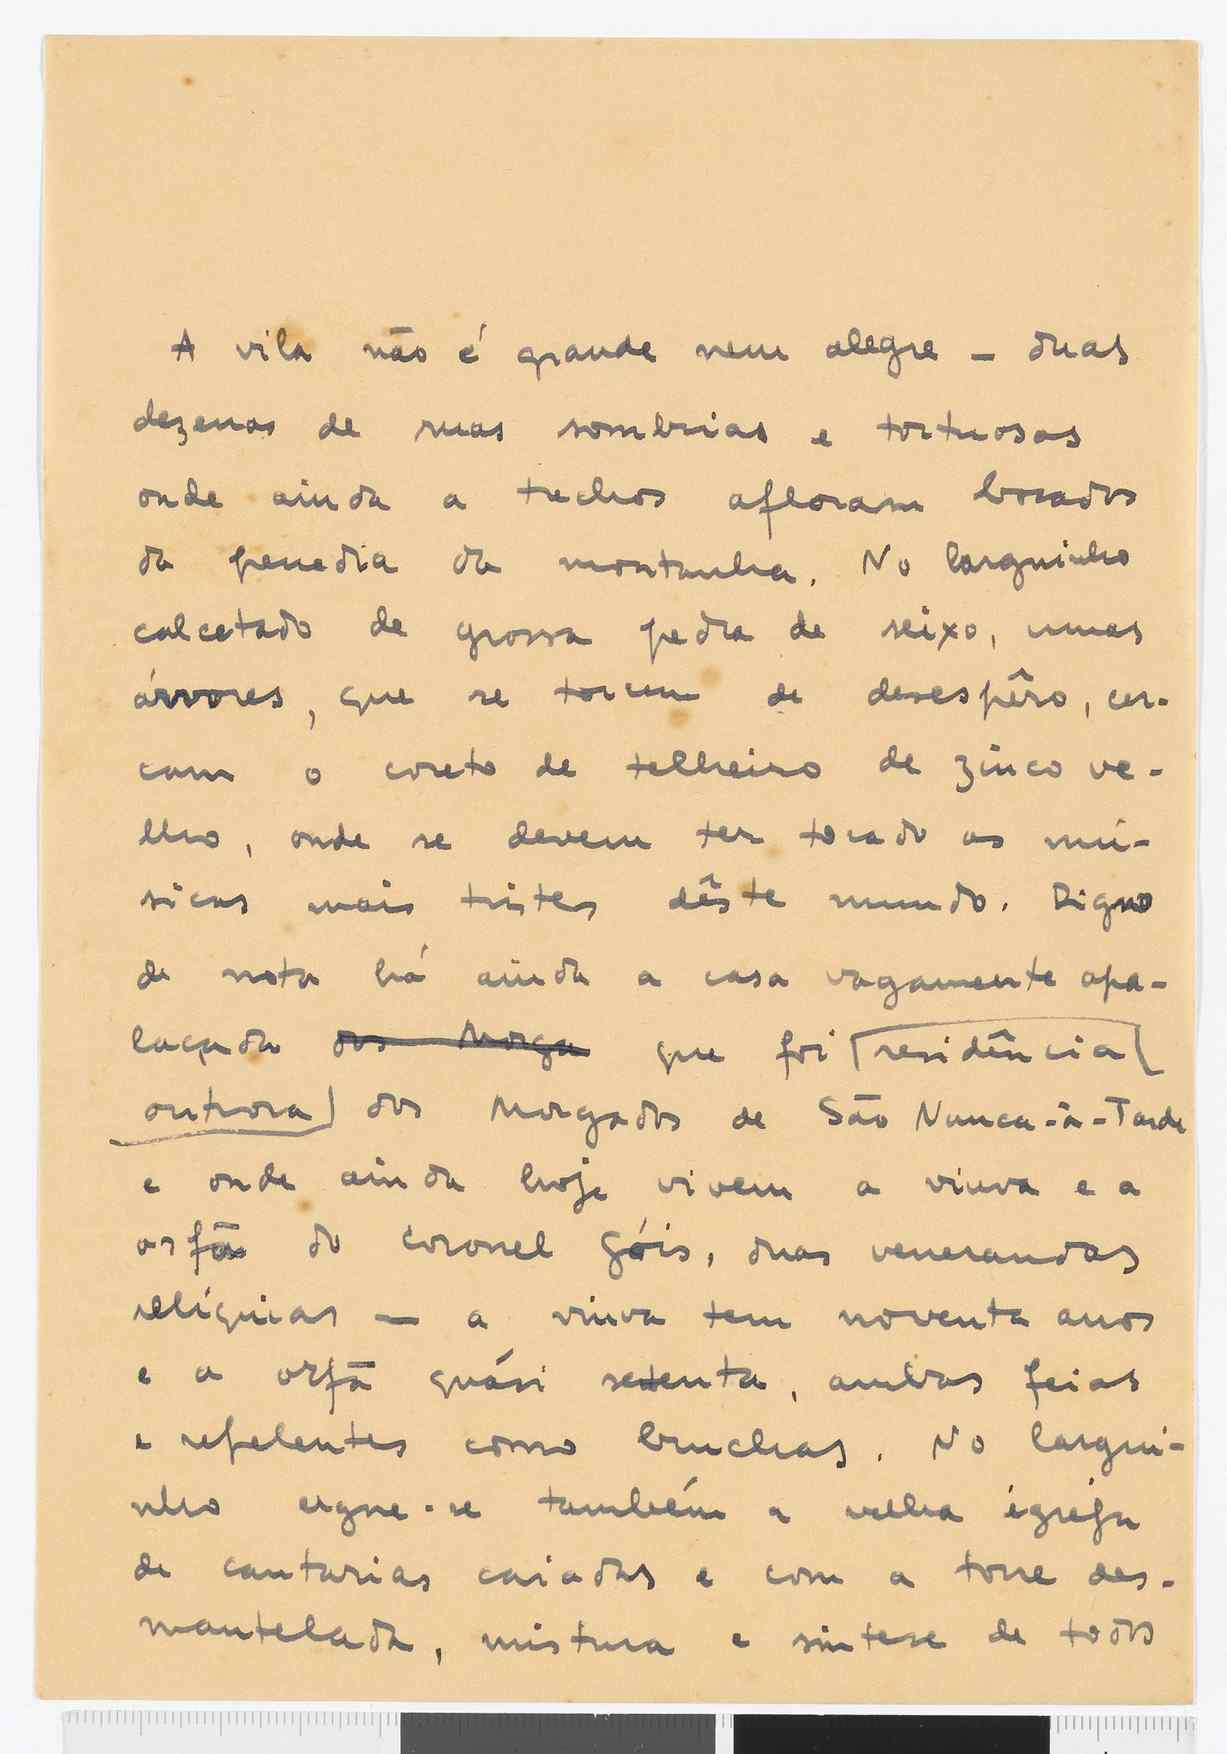 A vila não é grande nem alegre — duas
dezenas de ruas sombrias e tortuosas
onde ainda a trechos afloram bocados
da penedia da montanha. No larguinho
calcetado de grossa pedra de seixo, umas
árvores, que se torcem de desespêro, cer-
cam o coreto de telheiro de zinco ve-
lho, onde se devem ter tocado as mú-
sicas mais tristes dêste mundo. Digno
de nota há ainda a casa vagamente apa-
laçada dos Morga que foi residência
outrora dos Morgados de São Nunca-à-Tarde
e onde ainda hoje vivem a viuva e a
orfã do coronel Góis, duas venerandas
relíquias — a viuva tem noventa anos
e a orfã quási setenta, ambas feias
e repelentes como bruchas. No largui-
nho ergue-se também a velha igreja
de cantarias caiadas e com a torre des-
mantelada, mistura e sintese de todos